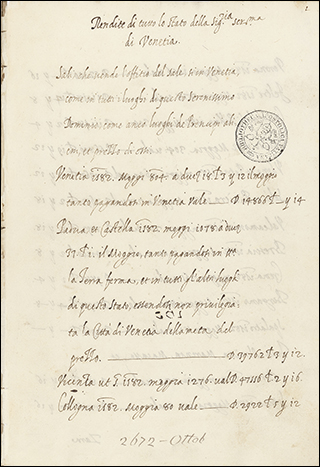 1.
Rendite di tutto lo Stato della Sig.ria Ser.ma
di Venetia.
vendendo l'officio del Sale, si in Venetia,
come in tutti i luoghi di questo Serenissimo
Dominio, come anco luoghi de Prencipi ali
eni, et prezzo di essi.
Venetia 1582. Moggi 804. a duc.ti 18 3 y 12 il moggio
tanto pagandosi in Venetia vale D. 14866 y 14
Padua, et Castella 1582. moggi 1078 a duc.
il Moggio, tanto pagandosi in
la Terra ferma, et in tutti gl'altri luoghi
di questo Stato, essendosi non privilegia
ta la Città di Venetia della metà del
prezzo. D. 39762 3 y 12.
Vicenza 1582. moggia 1276. val D. 47116 2 y 16.
Collogna 1582. Moggia 80 vale D. 2922 5 y 12
2672 - Ottob